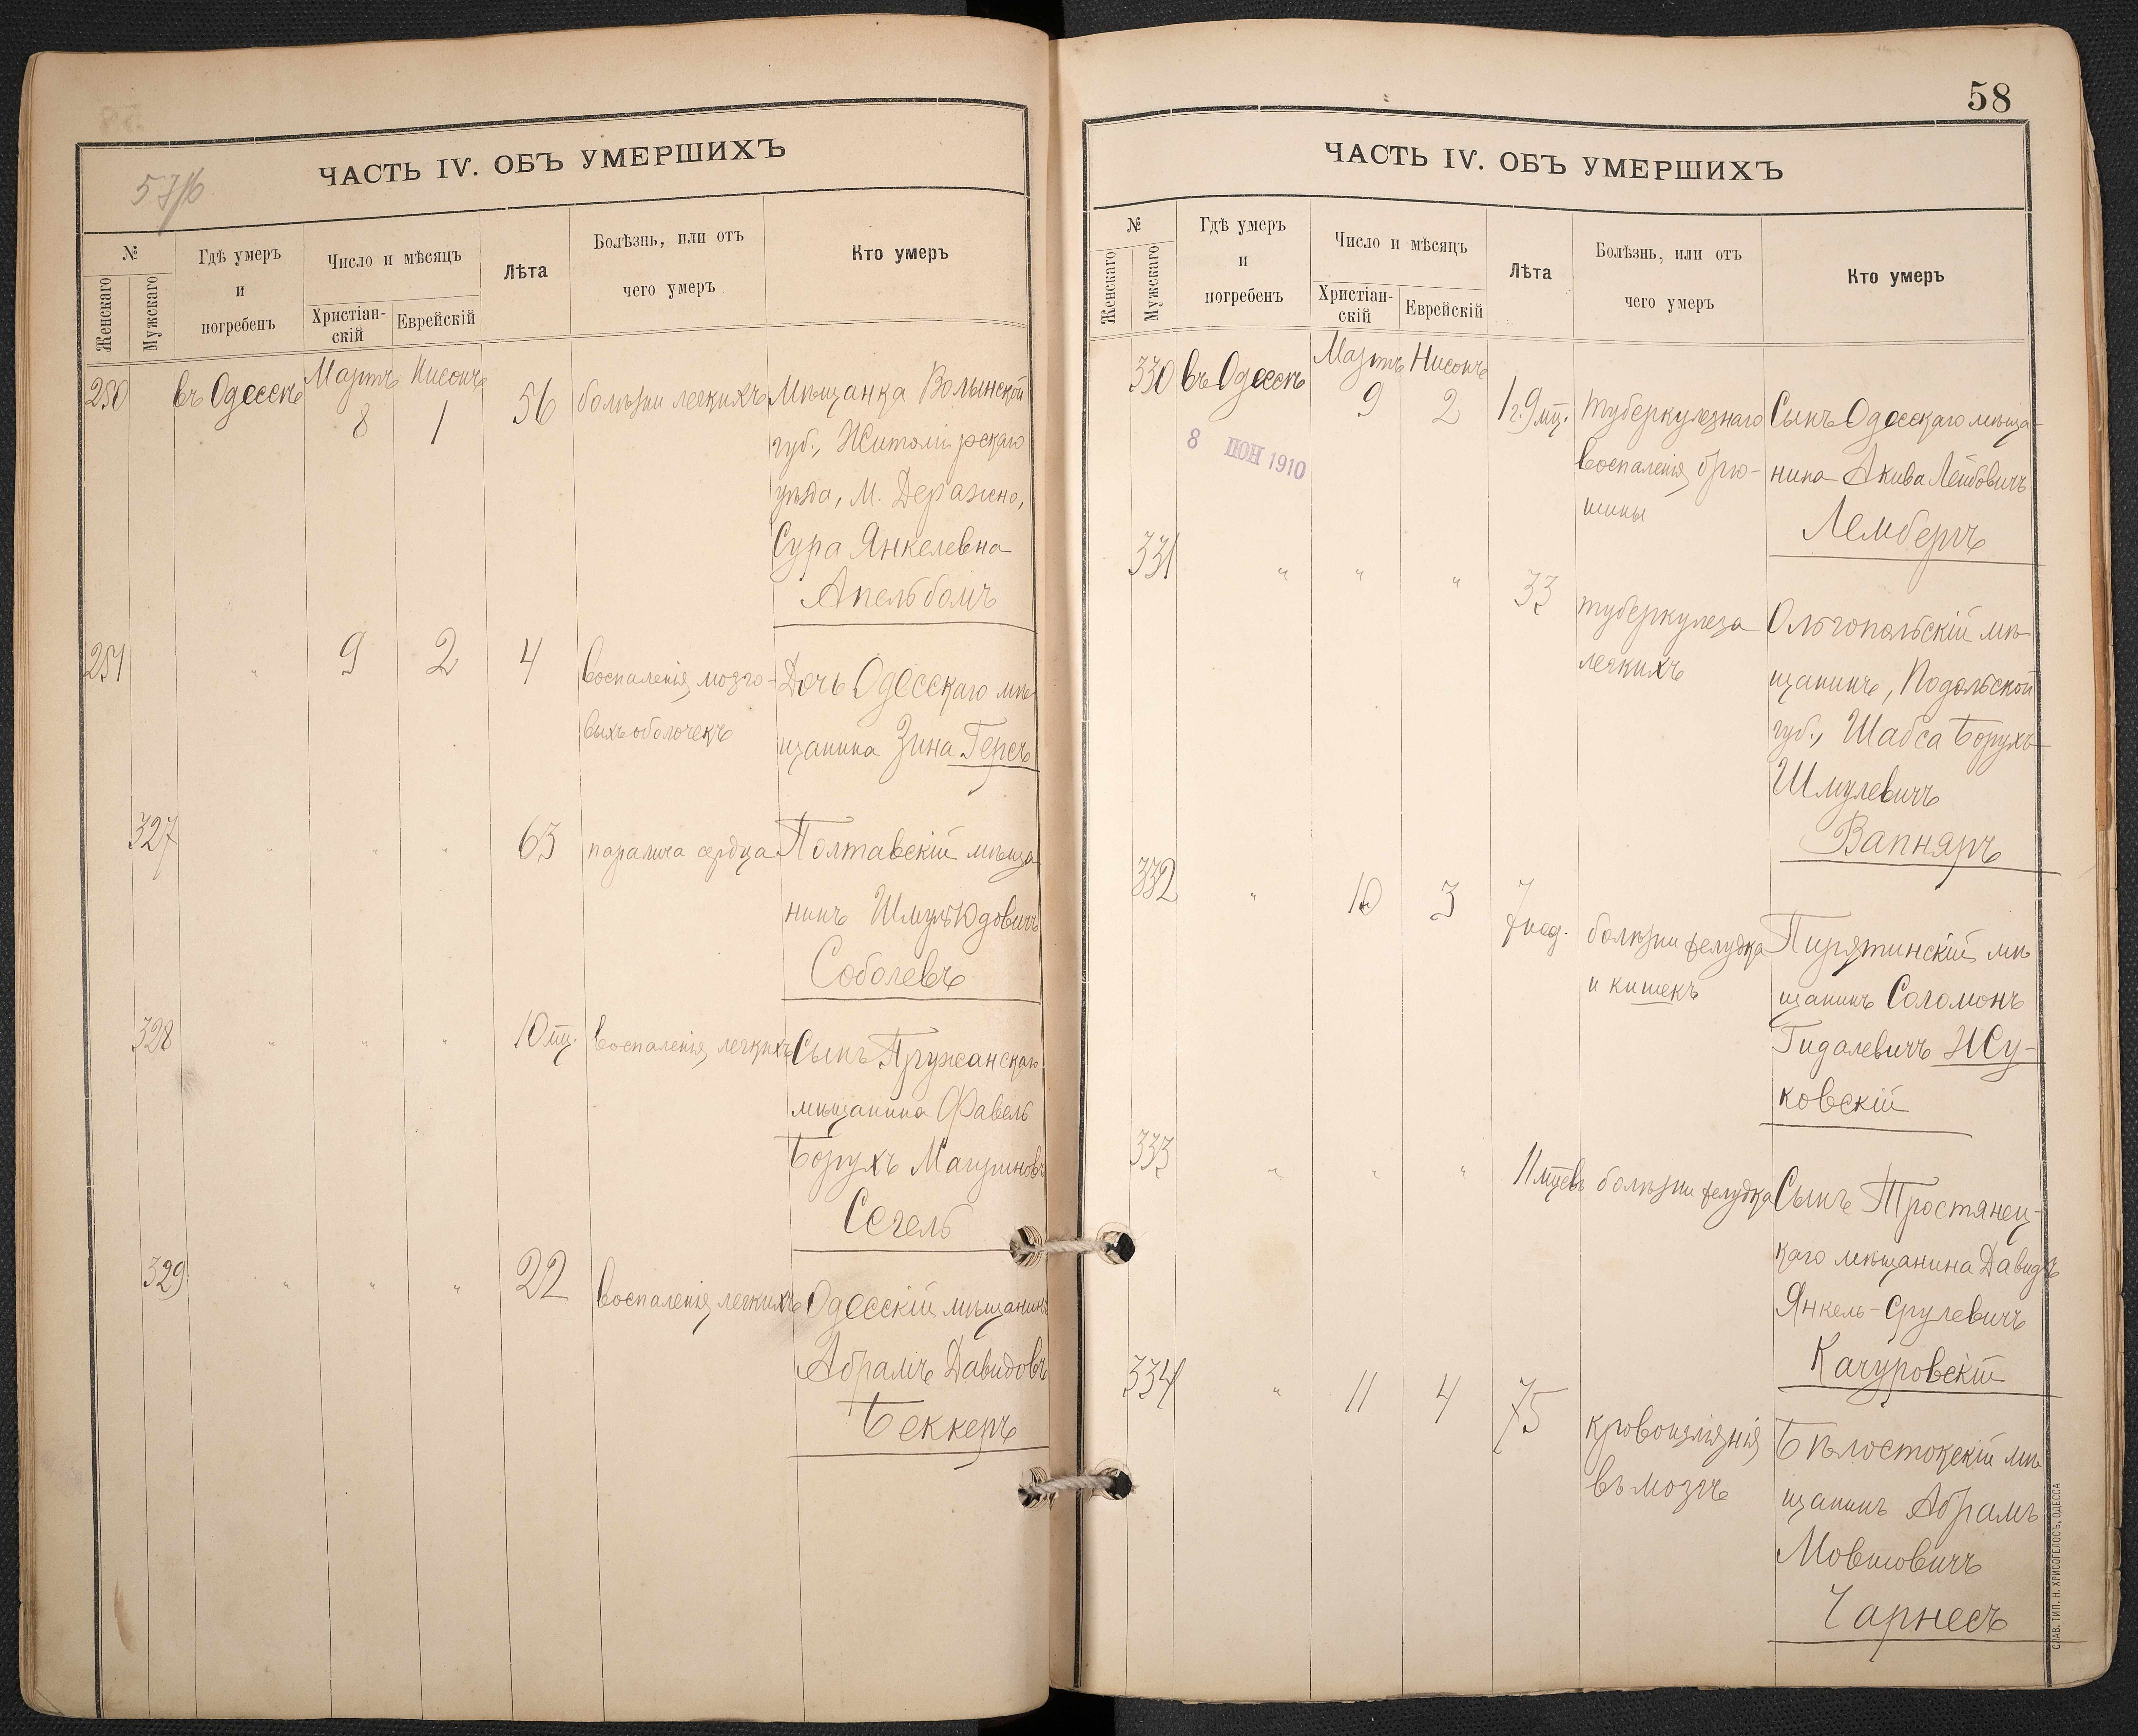 57/6
ЧАСТЬ IV. ОБЪ УМЕРШИХЪ
№
Женскаго
Мужскаго
Гдѣ умеръ
и
погребенъ
Число и мѣсяцъ
Христіан-
скій
Еврейскій
Лѣта
Болѣзнь, или отъ
чего умеръ
Кто умеръ
250 въ Одессѣ Мартъ Нисонъ
8 1 56 болѣзни легкихъ Мѣщанка Волынской
губ., Житомірскаго
уѣзда, М. Деражно,
Сура Янкелевна
Апельбомъ
251 " 9 2 4 воспаленія мозго- Дочь Одесскаго мѣ
выхъ оболочекъ щанина Зина Герсъ
327 " " " 63 паралича сердца Полтавскій мѣща
нинъ Шмуль Юдовичъ
Соболевъ
328 " " " 10 мц. воспаленія легкихъ Сынъ Пружанскаго
мѣщанина Фавель
Борухъ
Сегель
329 " " " 22 воспаленія легкихъ Одесскій мѣщанинъ
Абрамъ Давидовъ
Беккеръ
58
ЧАСТЬ IV. ОБЪ УМЕРШИХЪ
№
Женскаго
Мужскаго
Гдѣ умеръ
и
погребенъ
Число и мѣсяцъ
Христіан-
скій
Еврейскій
Лѣта
Болѣзнь, или отъ
чего умеръ
Кто умеръ
330 въ Одессѣ Мартъ Нисонъ
9 2 1 г. 9 мц. туберкулезнаго Сынъ Одесскаго мѣща-
8 ІЮН 1910
воспаленія брю- нина Акива Лейбовичъ
шины
Лембергъ
331 " " " 33 туберкулеза Ольгопольскій мѣ
легкихъ щанинъ, Подольской
губ., Шабса Борухъ
Шмулевичъ
Вапняръ
332 " 10 3 7 нед. болѣзни желудка Пирятинскій мѣ
и кишекъ щанинъ Соломонъ
Гидалевичъ Жу-
ковскій
333 " " " 11 мцевъ болѣзни желудка Сынъ Тростянец-
каго мѣщанина Давидъ
Янкель-Срулевичъ
Качуровскій
334 " 11 4 75 кровоизліянія Бѣлостокскій мѣ
въ мозгъ щанинъ Абрамъ
Мовшовичъ
Чарнесъ
СЛАВ. ТИП. Н. ХРИСОГЕЛОСЪ, ОДЕССА